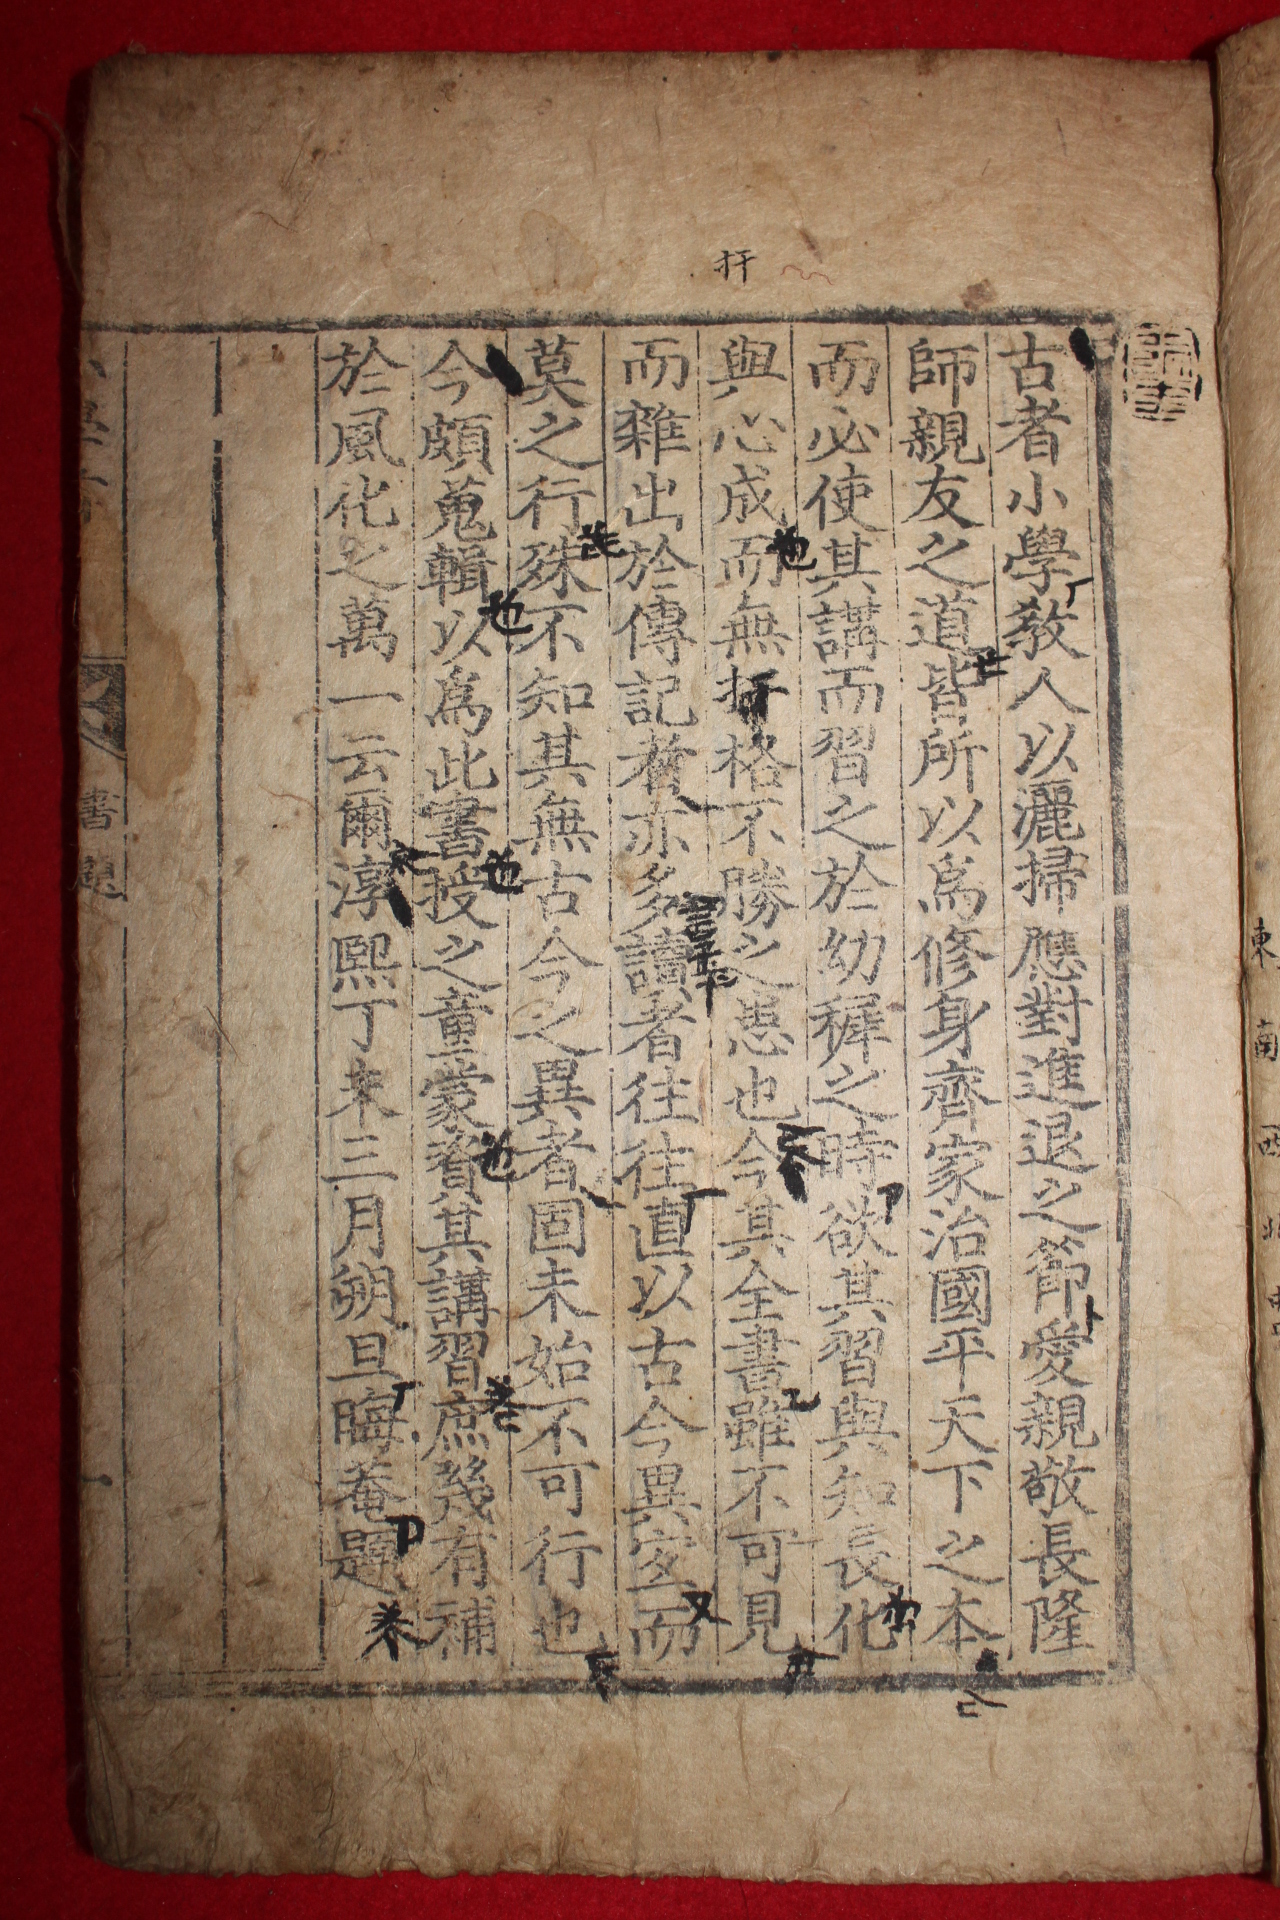 扞
古者小學教人以灑掃應對進退之節愛親敬長隆
師親友之道皆所以爲修身齊家治國平天下之本
而必使其講而習之於幼穉之時欲其習與知長化
與心成而無扞格不勝之患也今其全書雖不可見
而雜出於傳記者亦多讀者往往直以古今異宜而
莫之行殊不知其無古今之異者固未始不可行也
今頗蒐輯以爲此書授之童蒙資其講習庶幾有補
於風化之萬一云爾淳熙丁未三月朔旦晦菴題
書題
一
東南西北